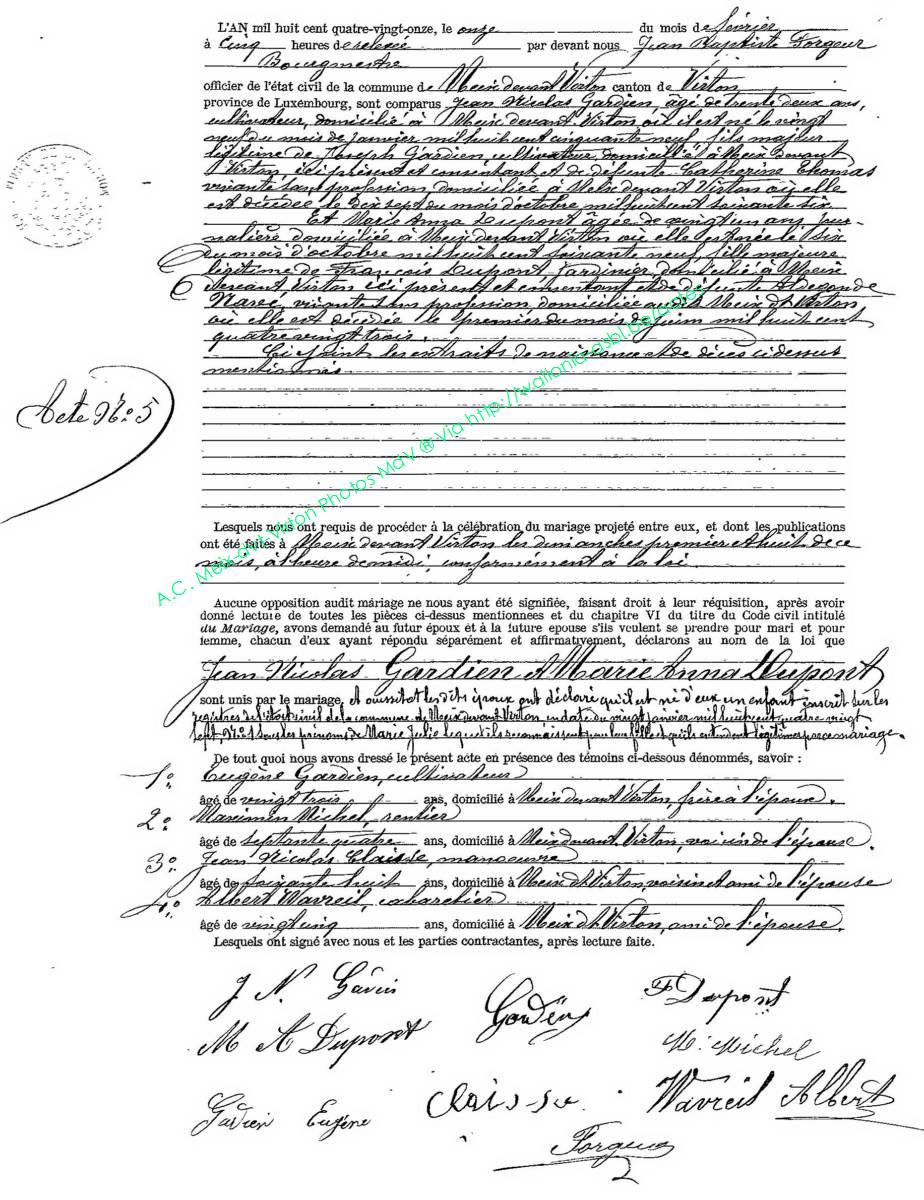 L'AN mil huit cent quatre-vingt-onze, le onze du mois de février
à Cinq heures de relevée par devant nous Jean Baptiste Forgeur
Bourgmestre
officier de l'état civil de la commune de Meix devant Virton canton de Virton,
province de Luxembourg, sont comparus Jean Nicolas Gardien, âgé de trente deux ans,
cultivateur, domicilié à Meix devant Virton où il est né le vingt
neuf du mois de janvier mil huit cent cinquante neuf, fils majeur
légitime de Joseph Gardien, cultivateur domicilié à Meix devant
Virton, ici présent et consentant et de défunte Catherine Thomas
vivante sans profession, domiciliée à Meix devant Virton où elle
est décédée le dix sept du mois d'octobre mil huit cent soixante six
Et Marie Anna Dupont âgée de vingt un ans, jour-
nalière domiciliée à Meix devant Virton où elle est née le six
du mois d'octobre mil huit cent soixante neuf, fille majeure
légitime de François Dupont, jardinier, domicilié à Meix
devant Virton ici présent et consentant et de défunte Aldegonde
Marcé, vivante sans profession, domiciliée audit Meix dt Virton
où elle est décédée le premier du mois de juin mil huit cent
quatre vingt trois.
Ci joint les extraits de naissance et de décès ci dessus
mentionnés
Acte No. 5
Lesquels nous ont requis de procéder à la célébration du mariage projeté entre eux, et dont les publications
ont été faites à Meix devant Virton les dimanches premier et huit de ce
mois, à l'heure de midi, conformément à la loi
Aucune opposition audit mariage ne nous ayant été signifiée, faisant droit à leur réquisition, après avoir
donné lecture de toutes les pièces ci-dessus mentionnées et du chapitre VI du titre du Code civil intitulé
du Mariage, avons demandé au futur époux et à la future epouse s'ils veulent se prendre pour mari et pour
femme, chacun d'eux ayant répondu séparément et affirmativement, déclarons au nom de la loi que
Jean Nicolas Gardien et Marie Anna Dupont
sont unis par le mariage, et aussitot les dits époux ont déclaré qu'il est né d'eux un enfant inscrit sur les
registres de l'état civil de la commune de Meix devant Virton, en date du vingt janvier mil huit cent quatre vingt
sept, No. 1 sous les prénoms de Marie Julie lequel ils reconnaissent pour leur fille et qu'ils entendent légitimer par ce mariage.
De tout quoi nous avons dressé le présent acte en présence des témoins ci-dessous dénommés, savoir :
1o. Eugène Gardien, cultivateur
âgé de vingt trois ans, domicilié à Meix devant Virton, frère à l'époux.
2o. Maximin Michel, rentier
âgé de septante quatre ans, domicilié à Meix devant Virton, voisin de l'épouse.
3o. Jean Nicolas Claisse, manoeuvre
âgé de soixante huit ans, domicilié à Meix dt Virton, voisin et ami de l'épouse
4o. Albert Wavreil, cabaretier
âgé de vingt cinq ans, domicilié à Meix dt Virton, ami de l'épouse.
Lesquels ont signé avec nous et les parties contractantes, après lecture faite.
J N. Gardien
Gardien
Dupont
M A Dupont
M. Michel
Gardien Eugène
Claisse
Wavreil Albert
Forgeur
A.C. Meix-dvt-Virton Photos MdV @ Via http://wallonia-asbl.be/actes